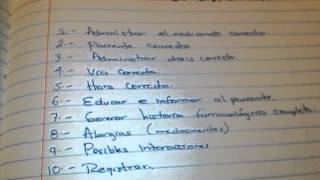 1.- Administrar el medicamento correcto.
2.- Paciente correcto
3.- Administrar dosis correcta.
4.- Vía Correcta.
5.- Hora Correcta.
6.- Educar e informar al paciente
7.- Generar historia farmacológica completa.
8.- Alergias (medicamentos)
9.- Posibles Interacciones
10.- Registrar.